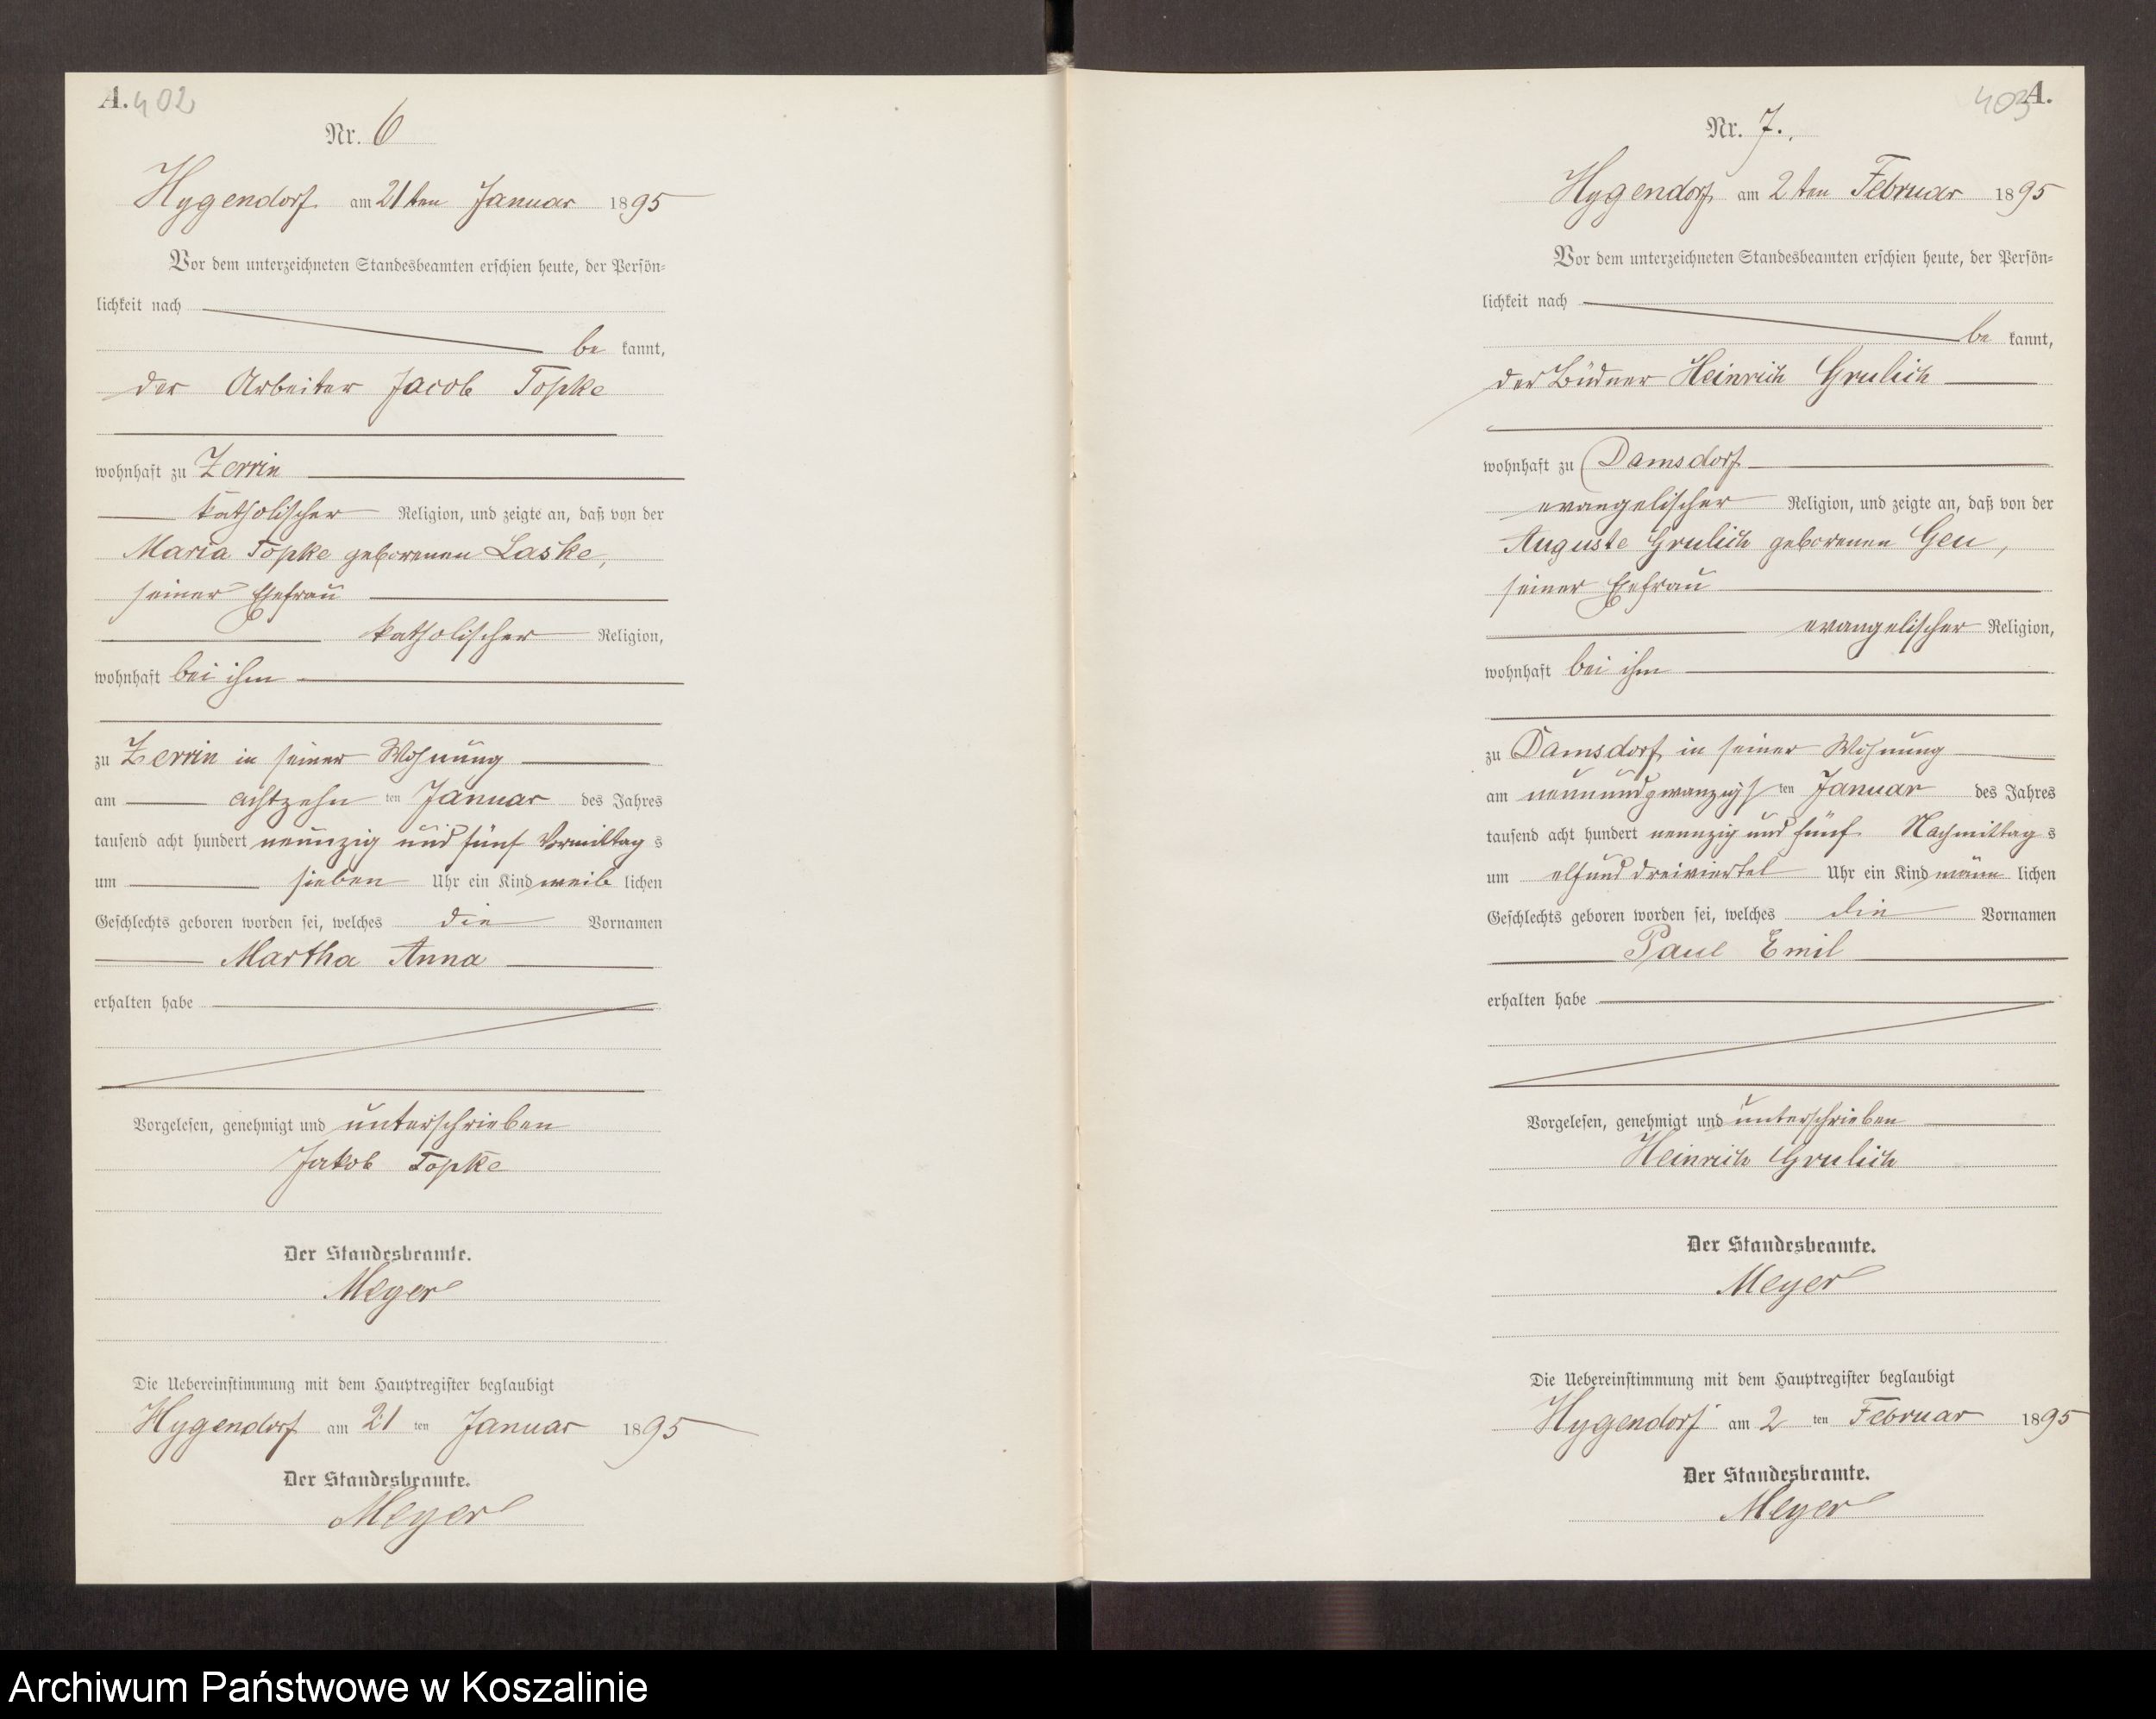 A. 402
Nr. 6
Hygendorf am 21ten Januar 1895
Vor dem unterzeichneten Standesbeamten erschien heute, der Persön-
lichkeit nach
be kannt,
der Arbeiter Jacob Topke
wohnhaft zu Zerrin
katholischer Religion, und zeigte an, daß von der
Maria Topke geborenen Laske,
seiner Ehefrau
katholischer Religion,
wohnhaft bei ihm
zu Zerrin in seiner Wohnung
am achtzehn ten Januar des Jahres
tausend acht hundert neunzig und fünf Vormittag s
um sieben Uhr ein Kind weib lichen
Geschlechts geboren worden sei, welches die Vornamen
Martha Anna
erhalten habe
Vorgelesen, genehmigt und unterschrieben
Jakob Topke
Der Standesbeamte.
Meyer
Die Uebereinstimmung mit dem Hauptregister beglaubigt
Hygendorf am 21 ten Januar 1895
Der Standesbeamte.
Meyer
403 A.
Nr. 7.
Hygendorf am 2ten Februar 1895
Vor dem unterzeichneten Standesbeamten erschien heute, der Persön-
lichkeit nach
be kannt,
der Büdner Heinrich Grulich
wohnhaft zu Damsdorf
evangelischer Religion, und zeigte an, daß von der
Auguste Grulich geborenen Geu,
seiner Ehefrau
evangelischer Religion,
wohnhaft bei ihm
zu Damsdorf in seiner Wohnung
am neunundzwanzigs ten Januar des Jahres
tausend acht hundert neunzig und fünf Nachmittag s
um elfunddreiviertel Uhr ein Kind männ lichen
Geschlechts geboren worden sei, welches die Vornamen
Paul Emil
erhalten habe
Vorgelesen, genehmigt und unterschrieben
Heinrich Grulich
Der Standesbeamte.
Meyer
Die Uebereinstimmung mit dem Hauptregister beglaubigt
Hygendorf am 2 ten Februar 1895
Der Standesbeamte.
Meyer
Archiwum Państwowe w Koszalinie